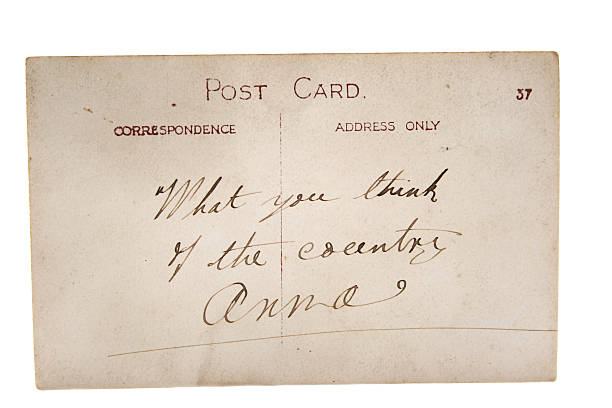 POST CARD.
37
CORRESPONDENCE
ADDRESS ONLY
"What you think
of the country
Anna